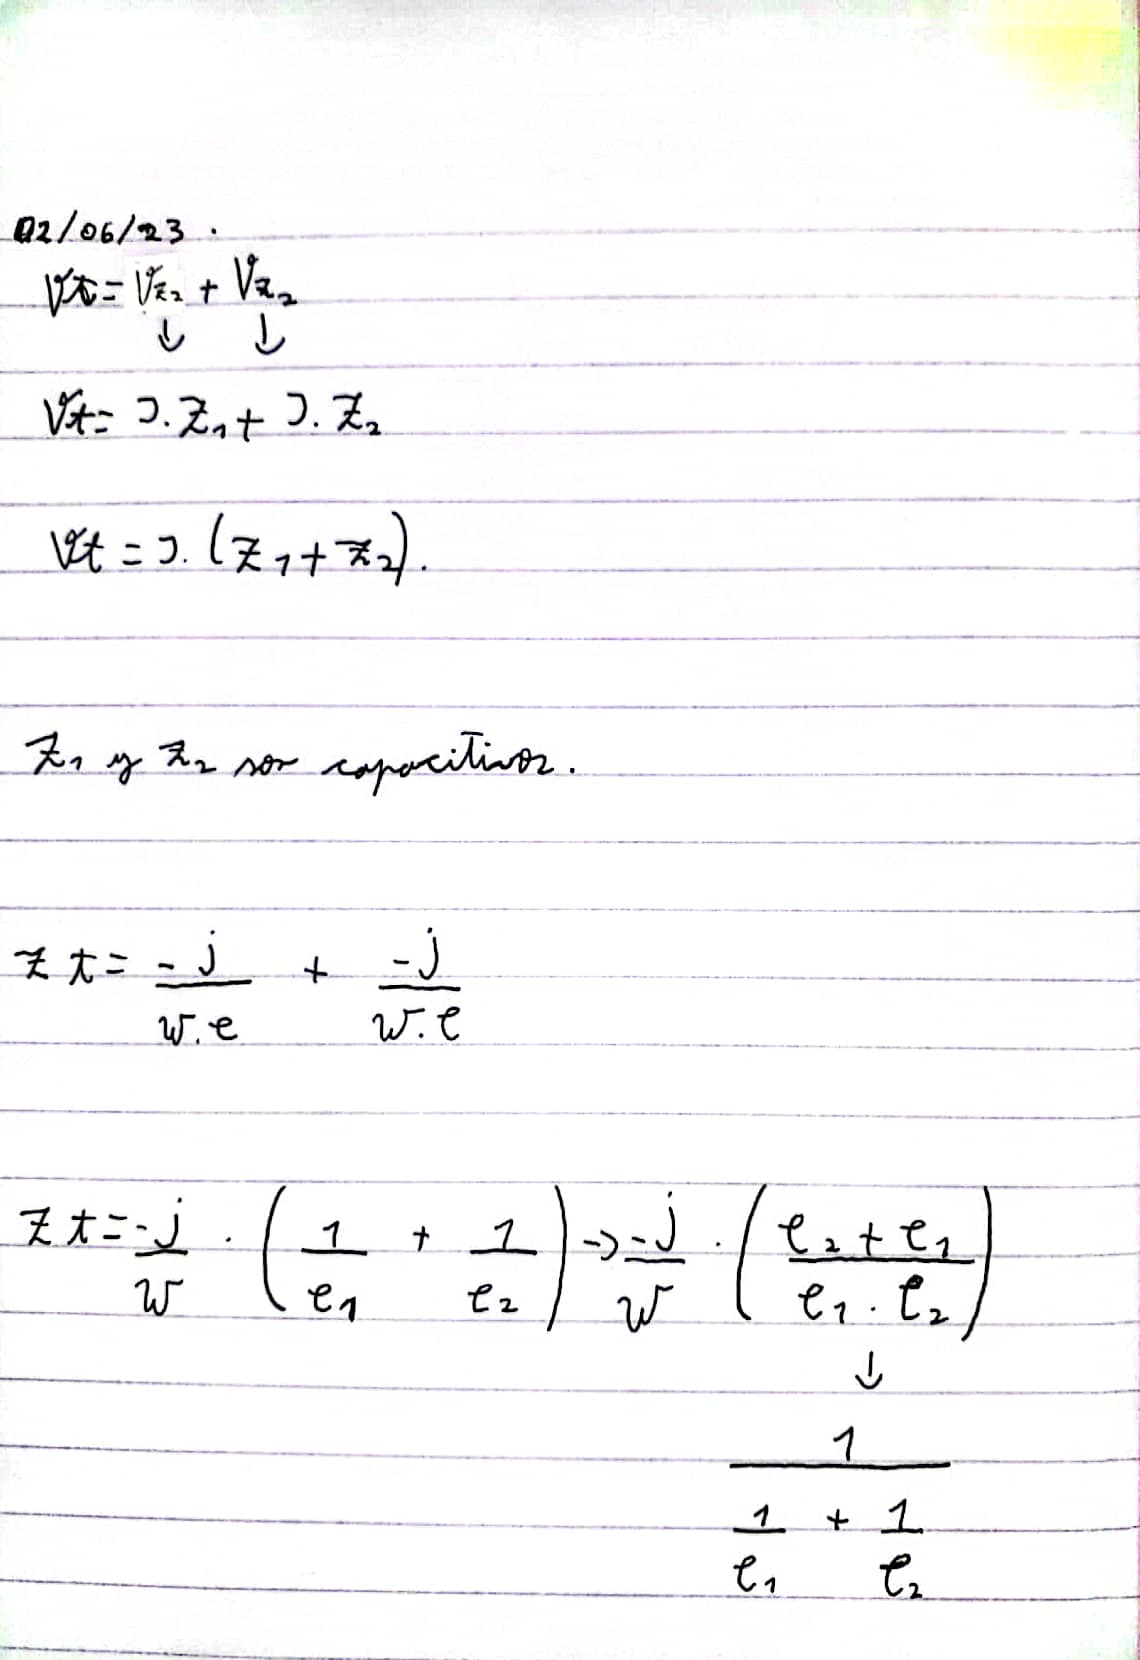 02/06/23.
Vt = Vz2 + Vz2
↓ ↓
Vt = I.Z1 + I.Z2
Vt = I.(Z1+Z2).
Z1 y Z2 son capacitivos.
Zt = -j/w.c + -j/w.c
Zt = -j/w . (1/c1 + 1/c2) → -j/w . (c2+c1/c1.c2)
↓
1
1/c1 + 1/c2